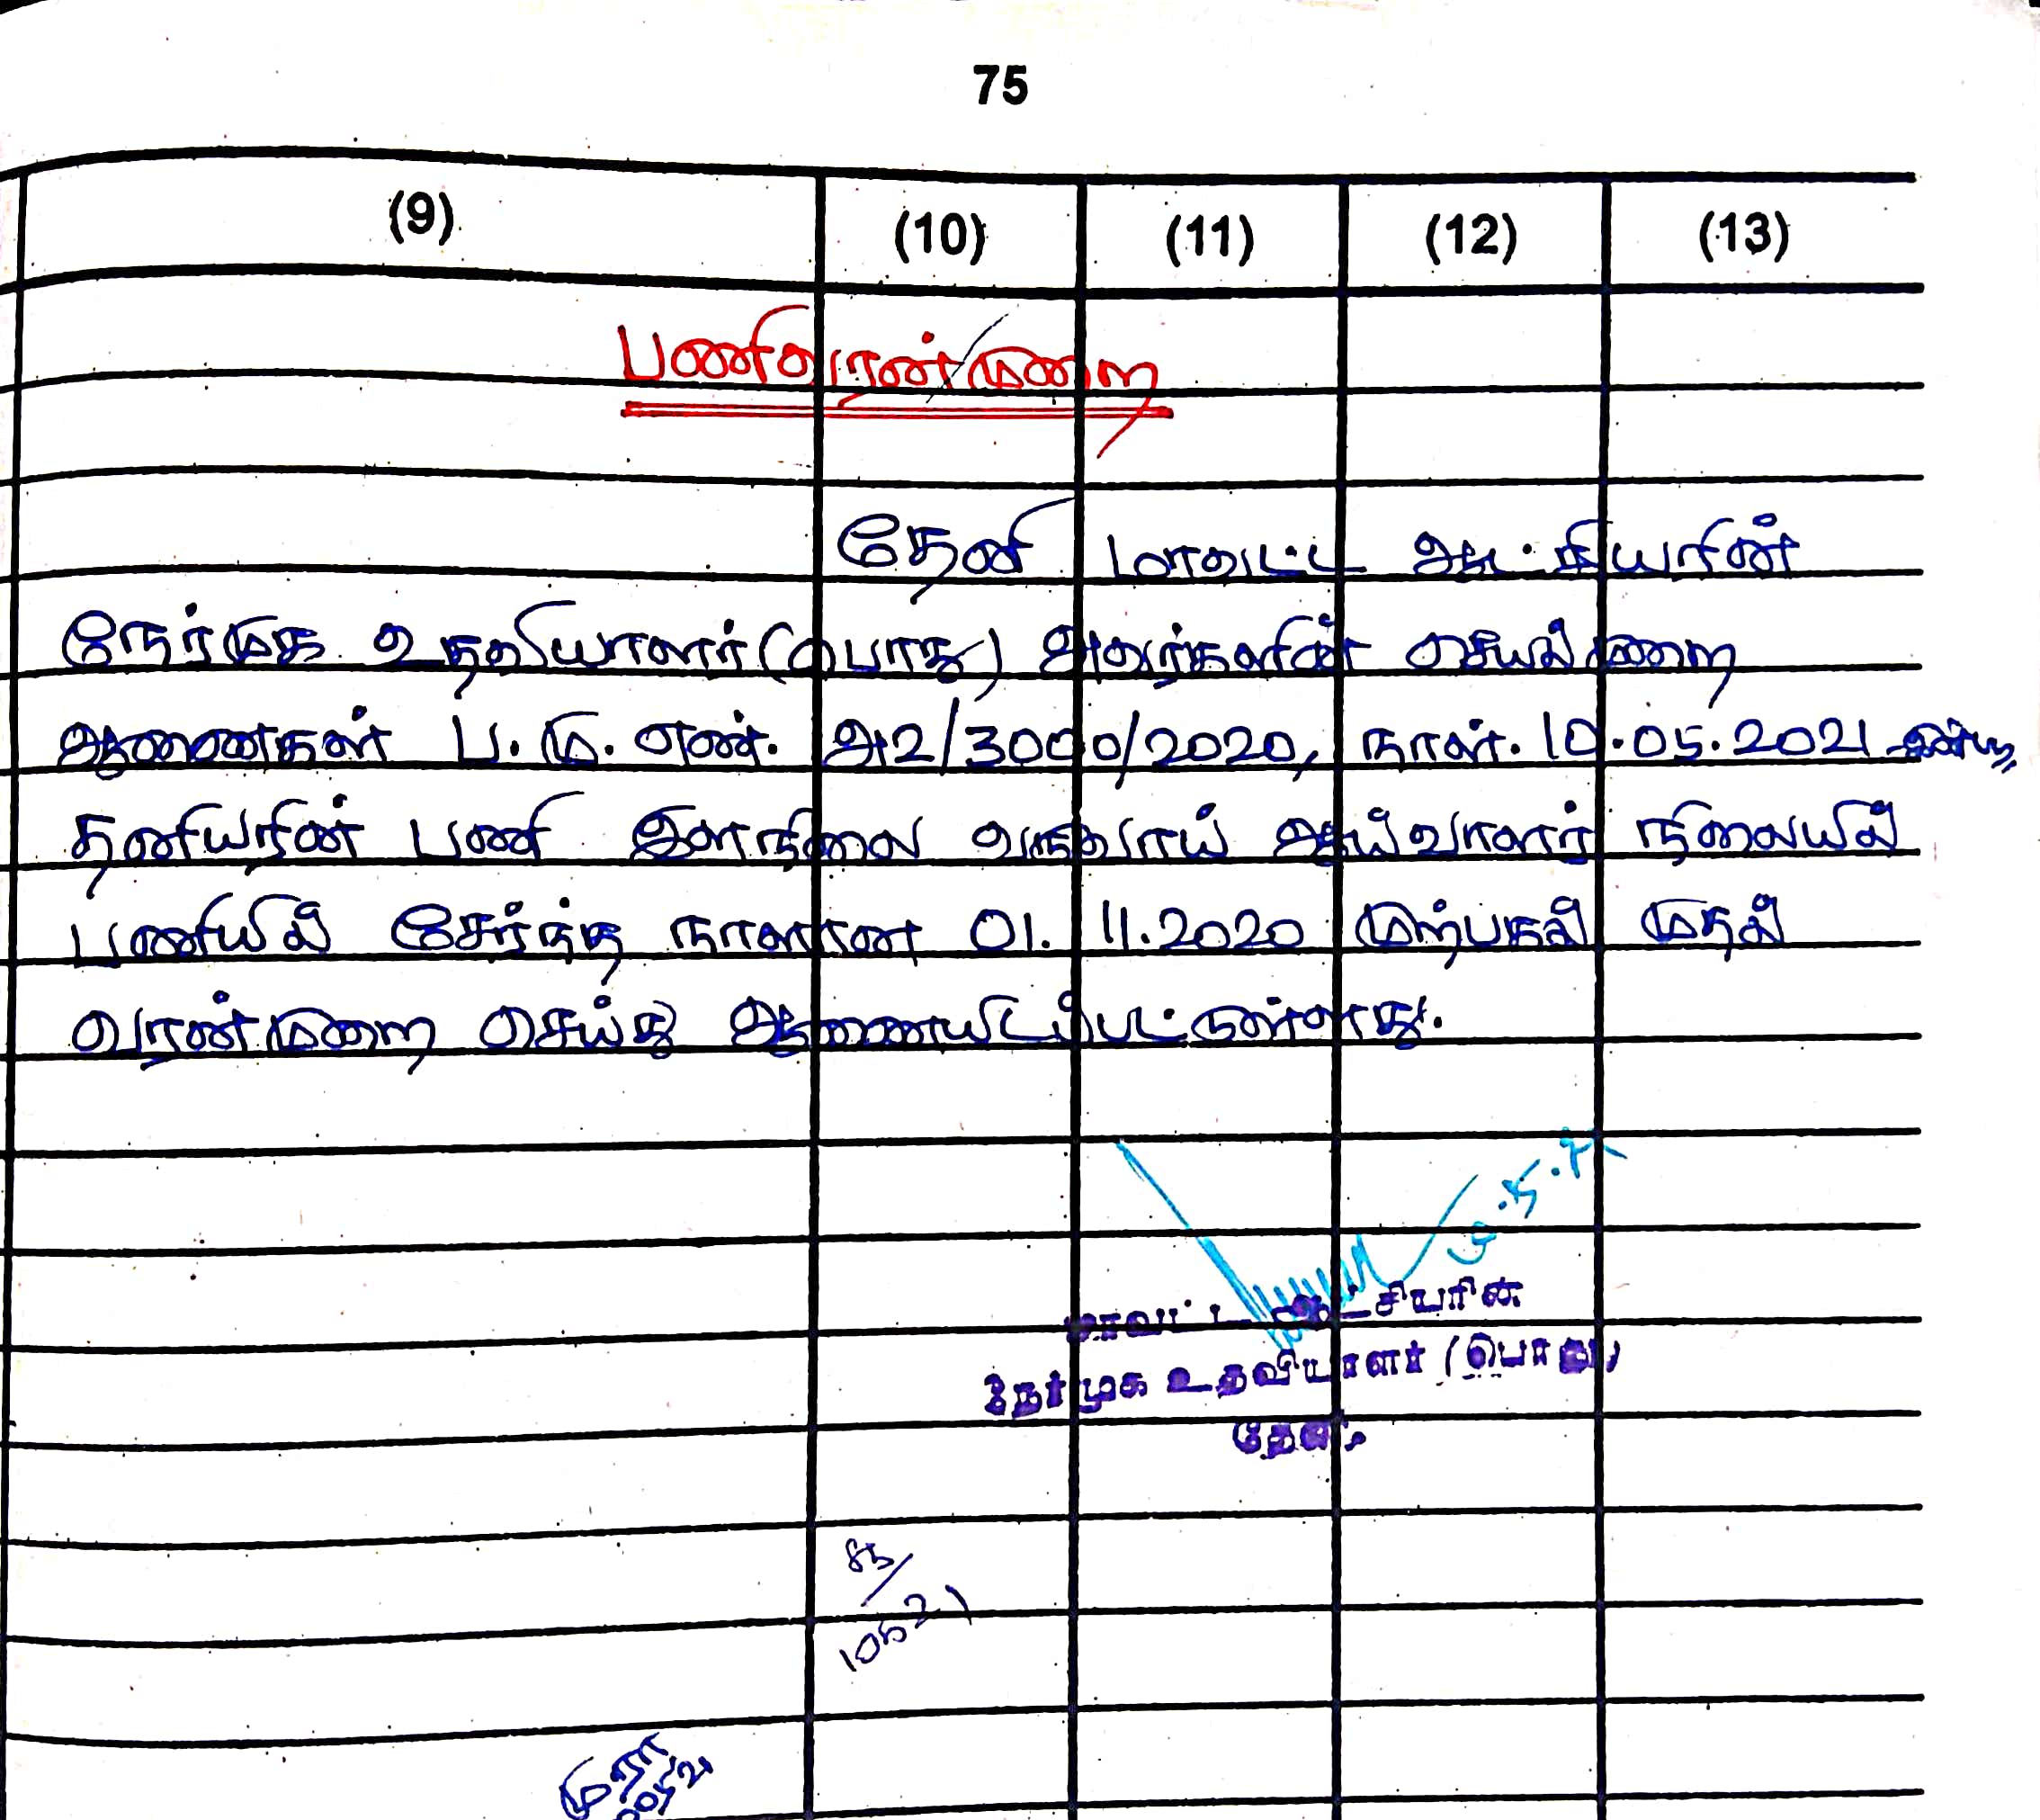 75
(9) (10) (11) (12) (13)
பணிவரன்முறை
தேனி மாவட்ட ஆட்சியரின்
நேர்முக உதவியாளர் (பொது) அவர்களின் செயல்முறை
ஆணைகள் ப.மு.எண். அ2/3000/2020, நாள். 10.05.2021 இன்படி,
தனியரின் பணி இளநிலை வருவாய் ஆய்வாளர் நிலையில்
பணியில் சேர்ந்த நாளான 01.11.2020 முற்பகல் முதல்
வரன்முறை செய்து ஆணையிடப்பட்டுள்ளது.
மாவட்ட ஆட்சியரின்
நேர்முக உதவியாளர் (பொது)
தேனி